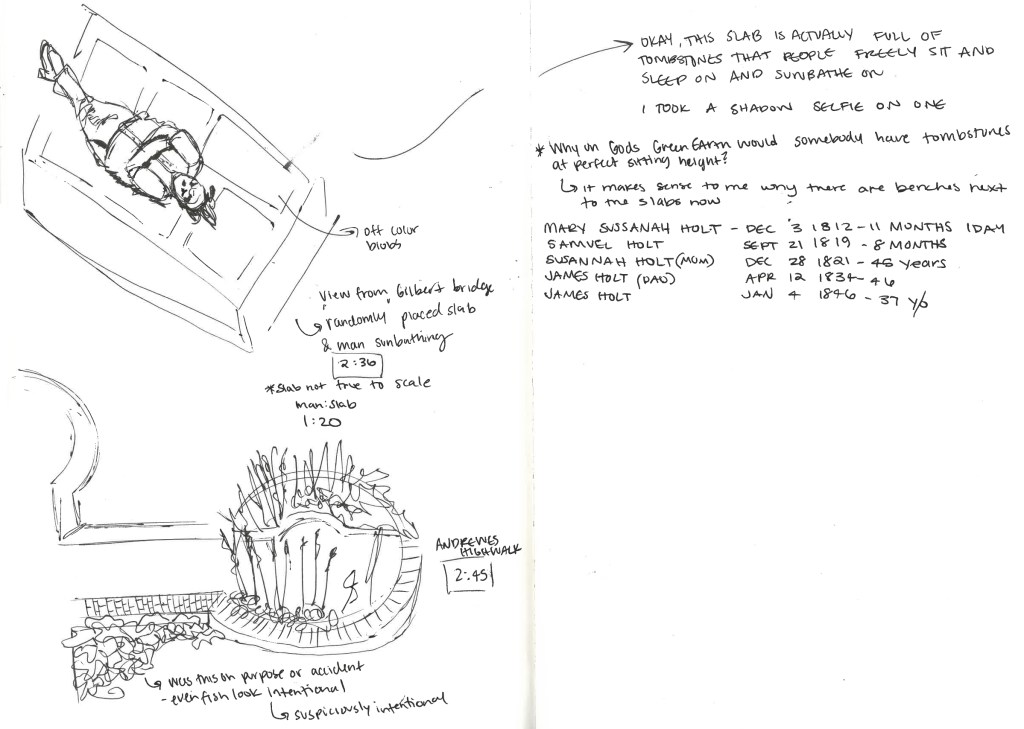 off color
blobs
view from Gilbert bridge
randomly placed slab
& man sunbathing
2:36
*Slab not true to scale
man:slab
1:20
ANDREWES
HIGHWALK
2:45
was this on purpose or accident
- even fish look intentional
suspiciously intentional
OKAY, THIS SLAB IS ACTUALLY FULL OF
TOMBSTONES THAT PEOPLE FREELY SIT AND
SLEEP ON AND SUNBATHE ON
I TOOK A SHADOW SELFIE ON ONE
* Why on Gods Green Earth would somebody have tombstones
at perfect sitting height?
it makes sense to me why there are benches next
to the slabs now
MARY SUSANAH HOLT - DEC 3 1812 - 11 MONTHS 1 DAY
SAMUEL HOLT SEPT 21 1819 - 8 MONTHS
SUSANNAH HOLT (MOM) DEC 28 1821 - 45 years
JAMES HOLT (DAD) APR 12 1834 - 46
JAMES HOLT JAN 4 1846 - 37 y/o